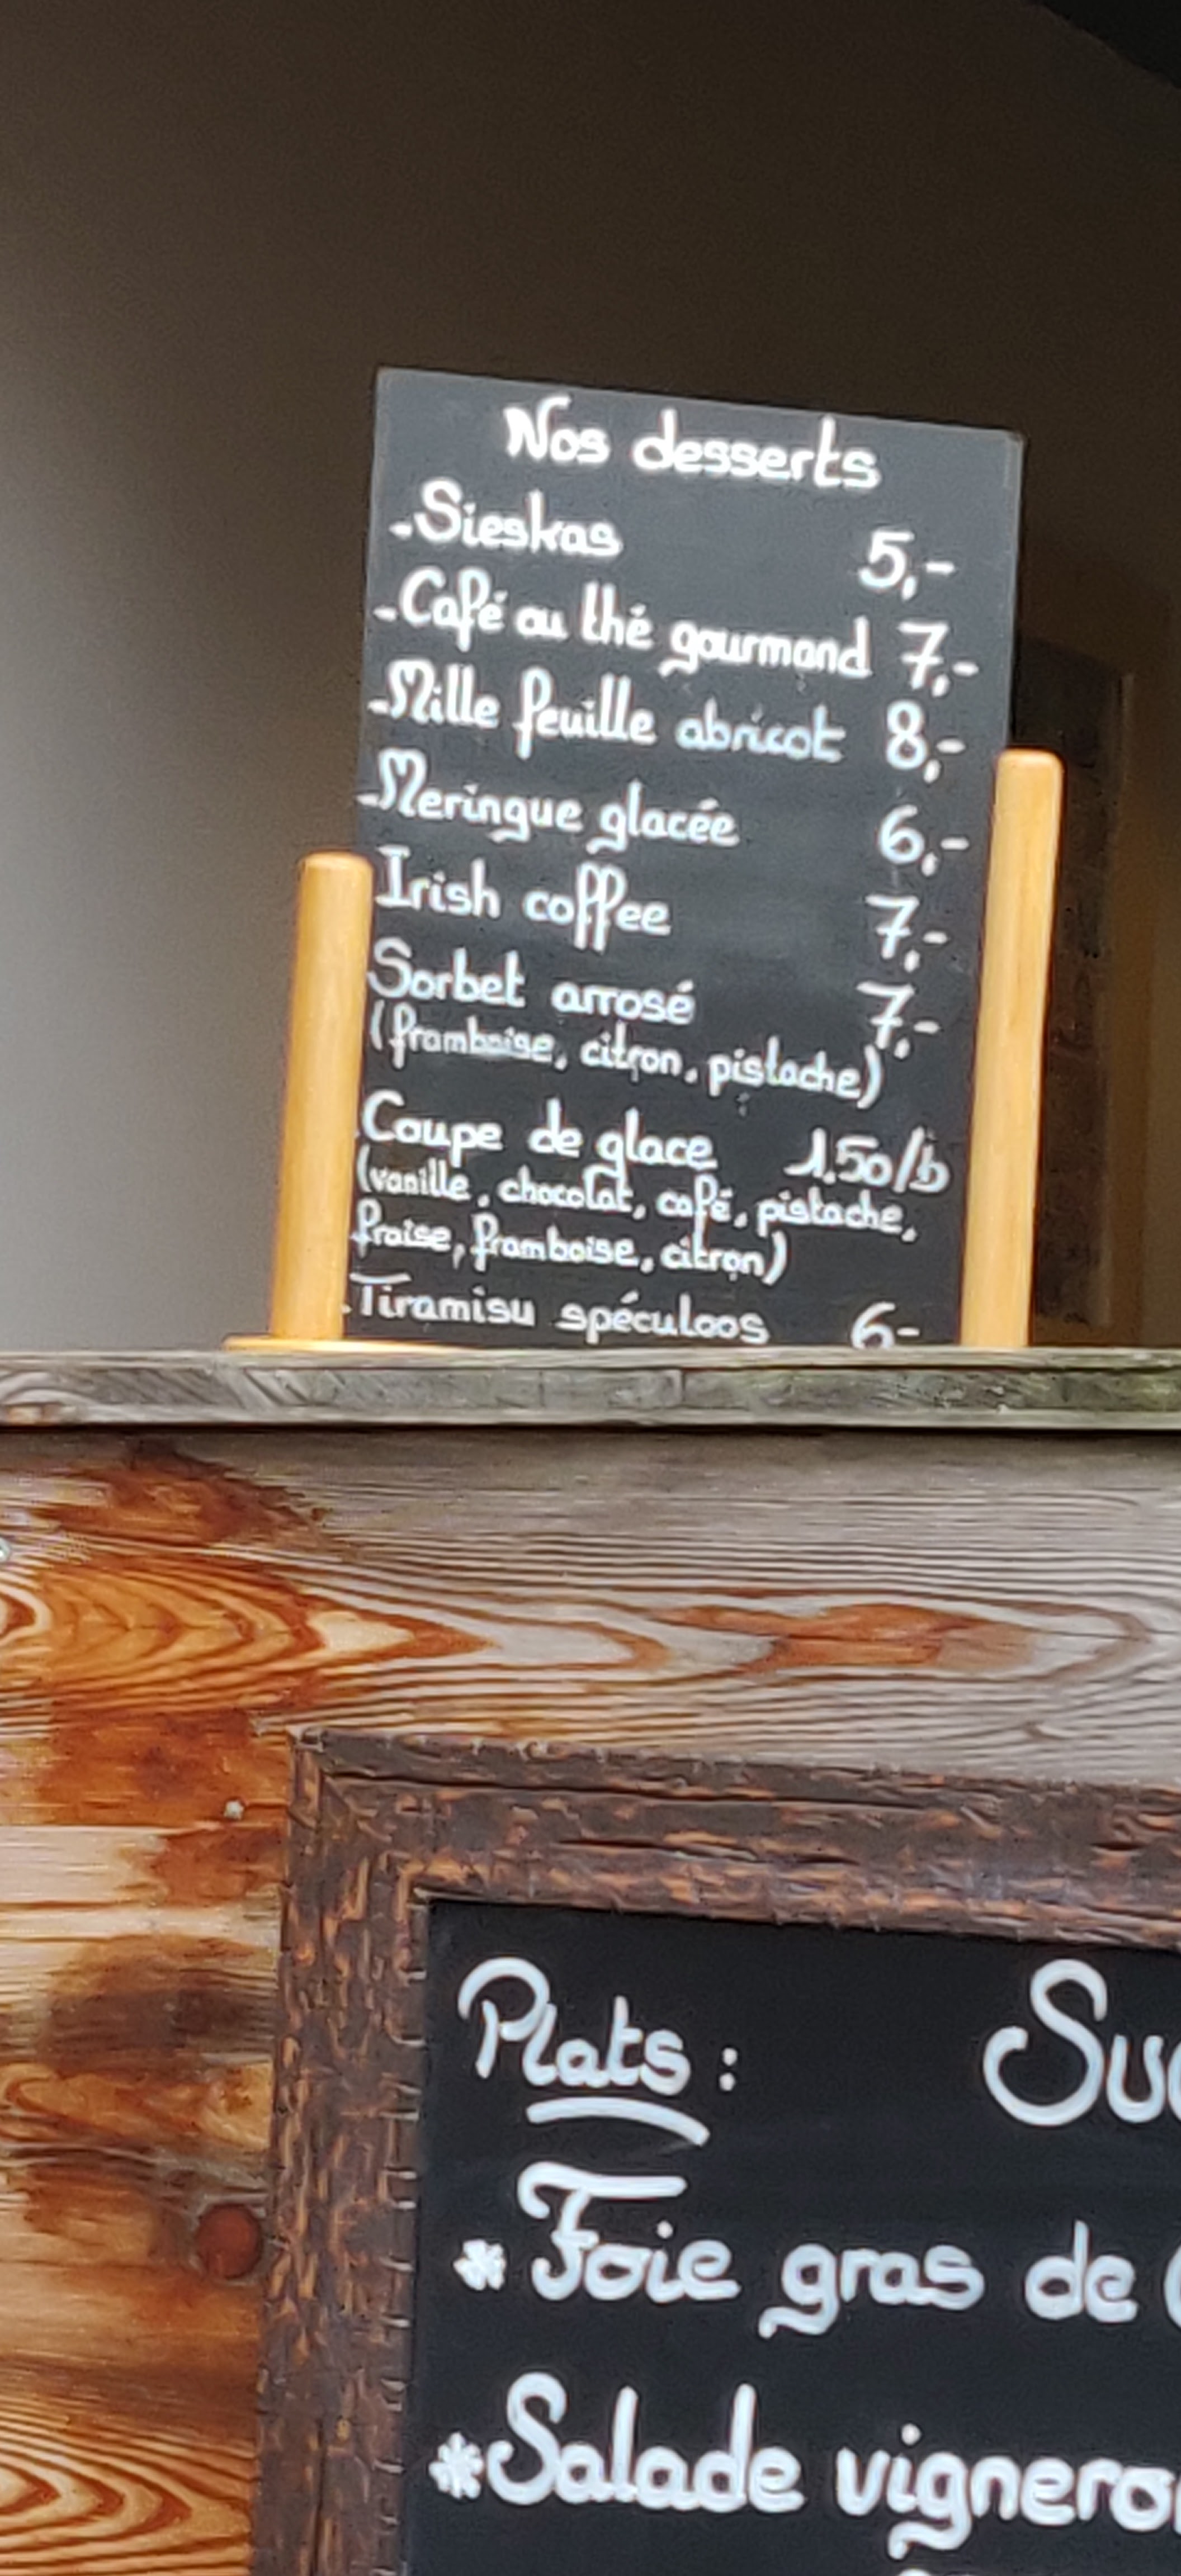 Nos desserts
-Sieskas 5,-
-Café ou thé gourmand 7,-
-Mille feuille abricot 8,-
-Meringue glacée 6,-
Irish coffee 7,-
Sorbet arrosé 7,-
(framboise, citron, pistache)
Coupe de glace 1.50/b
(vanille, chocolat, café, pistache,
fraise, framboise, citron)
Tiramisu spéculoos 6-
Plats :
* Foie gras de
*Salade